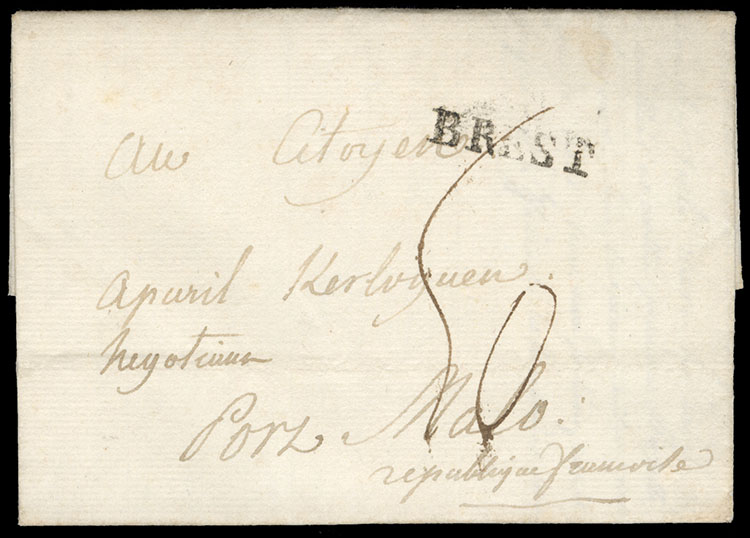 BREST
Au Citoyen
apuril Kerloguen.
negotiann
Port Malo.
republique francoise